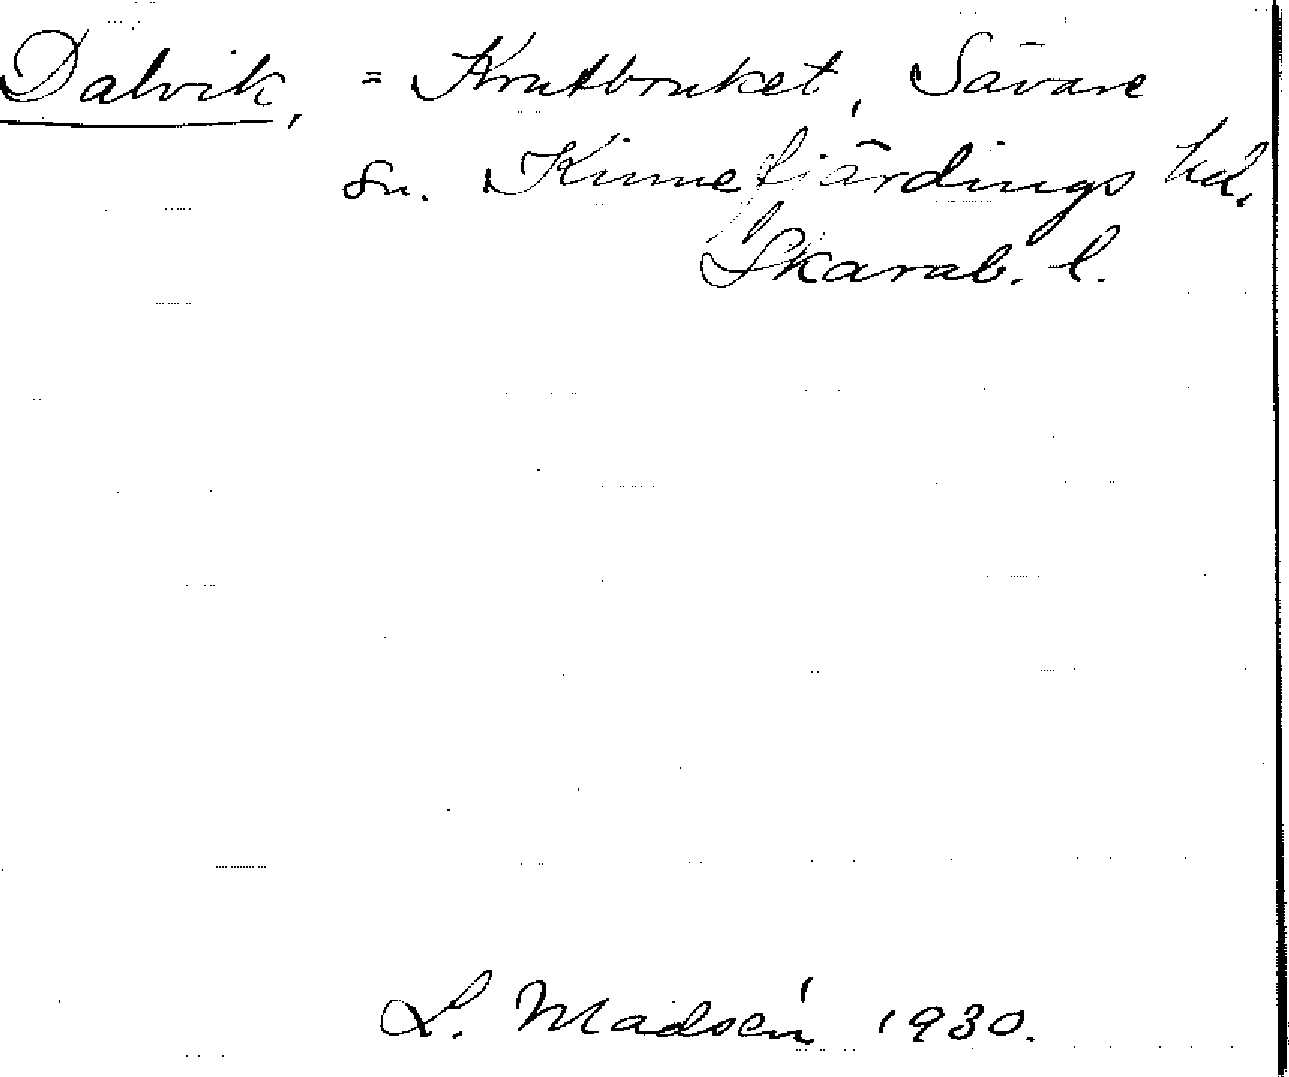 Dalvik, = Krutbruket, Sävare
sn. Kinnefjärdings hd.
Skarab. l.
L. Madsén 1930.